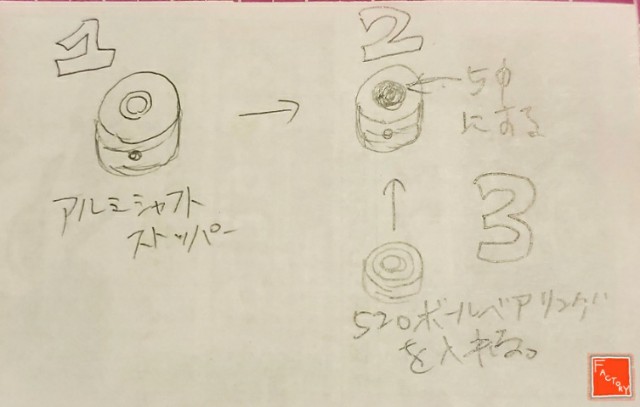 1
アルミシャフト
ストッパー
2
5φ
にする
3
520ボールベアリング
を入れる。
FACTORY